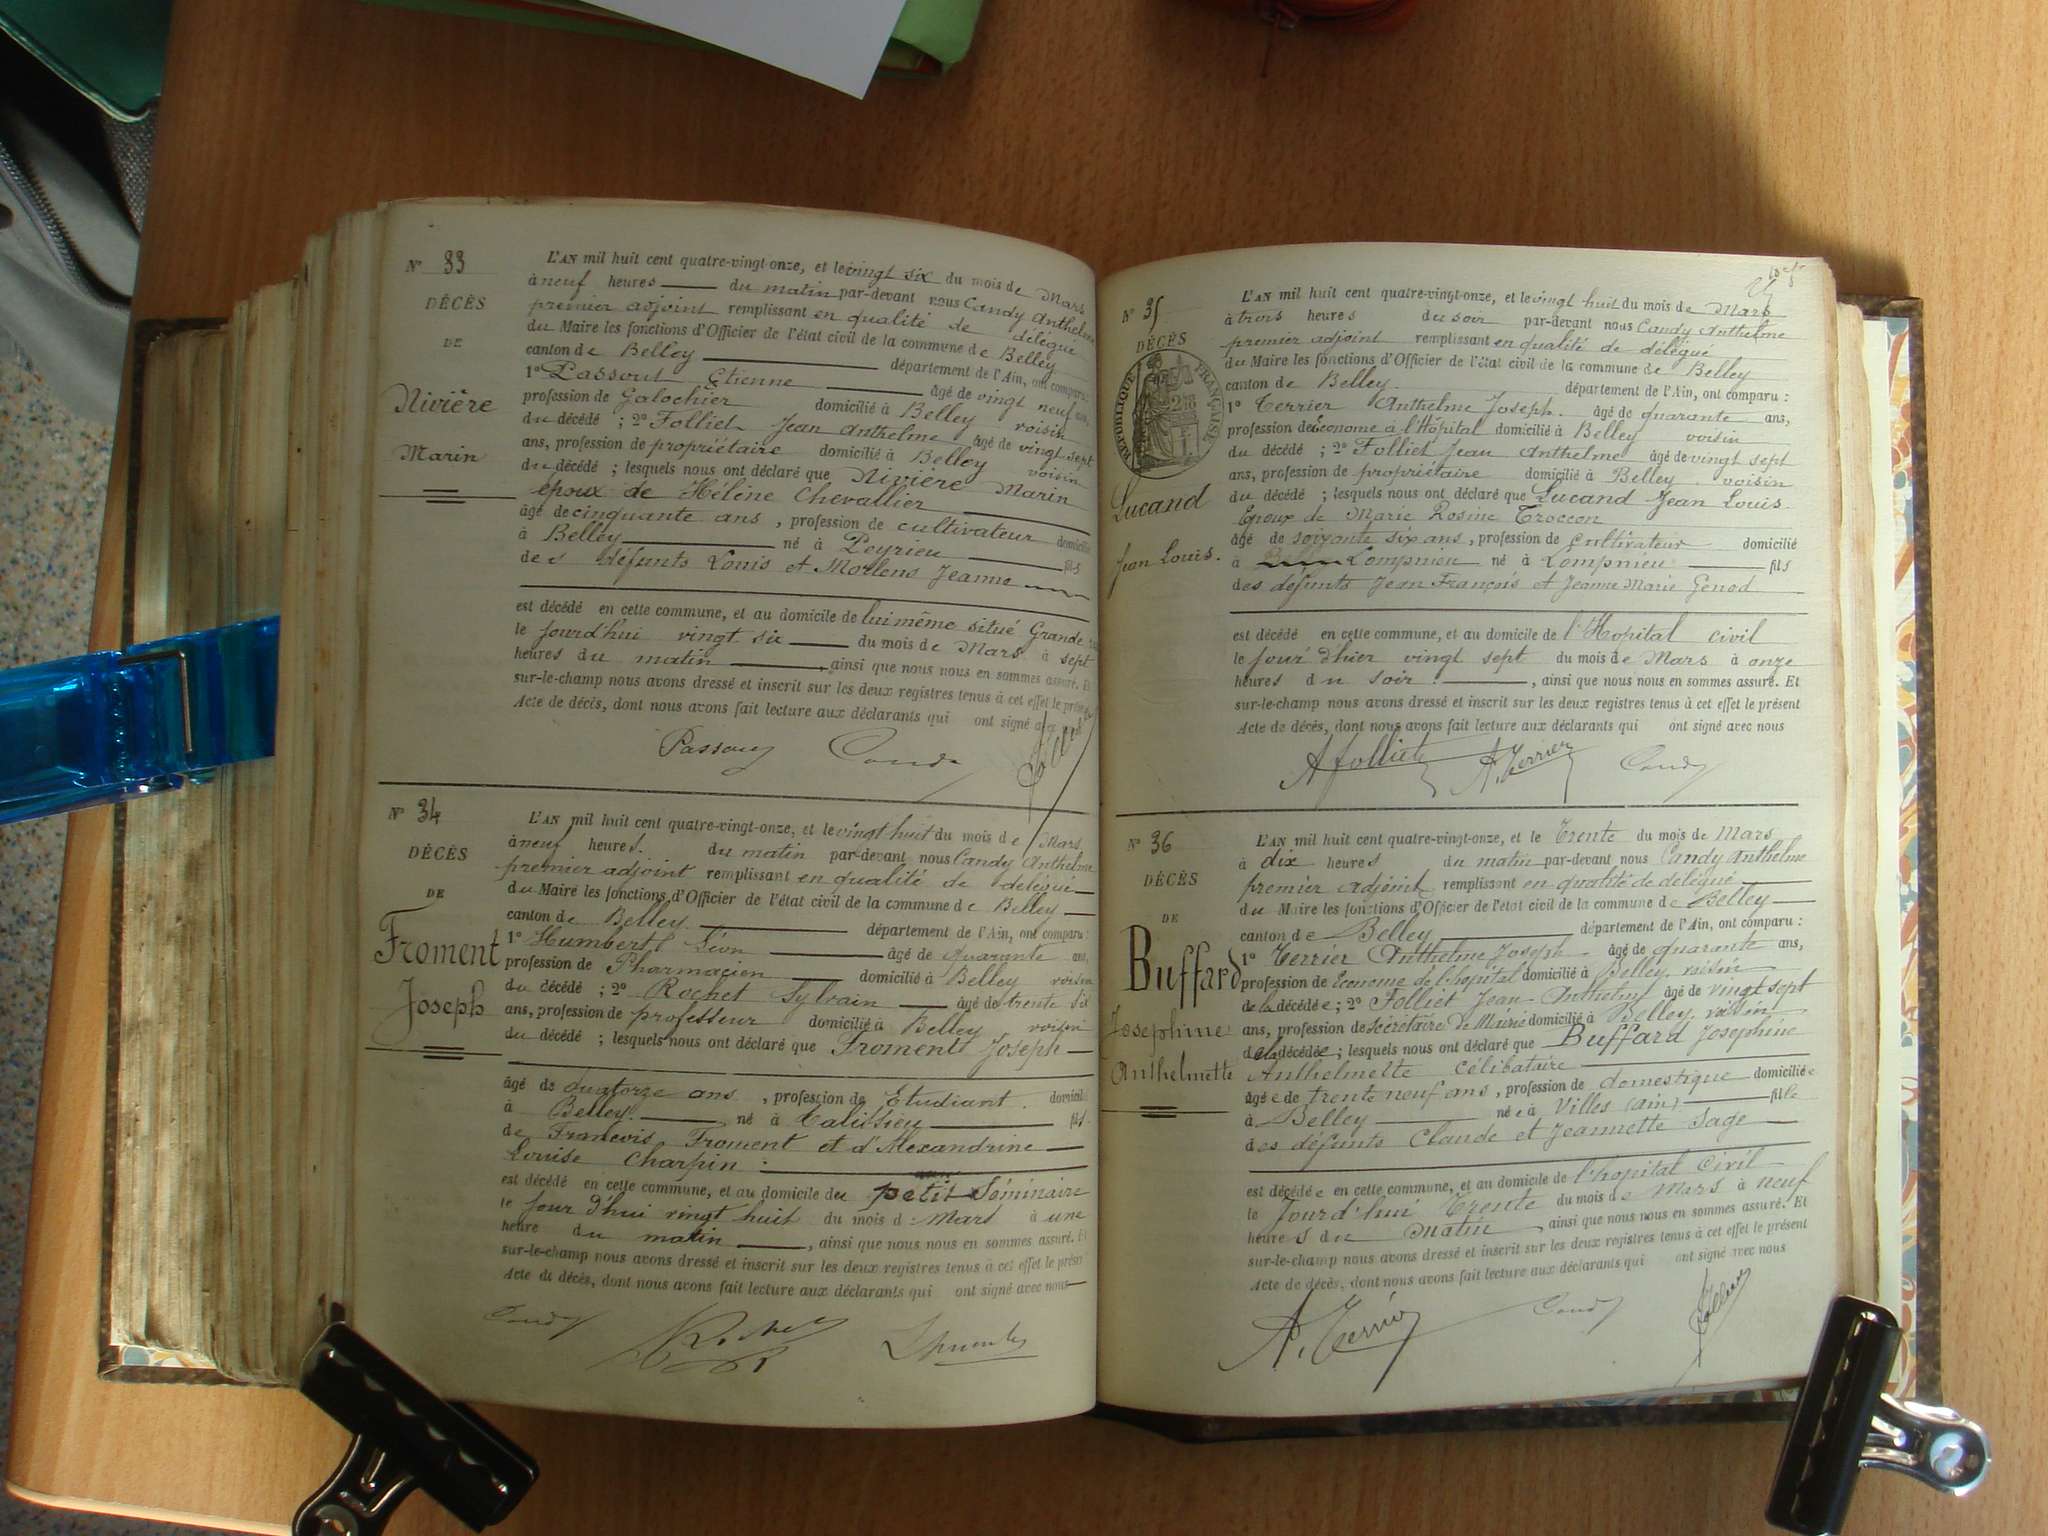 N° 33
DÉCÈS
DE
Rivière
Marin
L'AN mil huit cent quatre-vingt-onze, et le vingt six du mois de Mars
à neuf heures du matin par-devant nous Candy Anthelme
premier adjoint remplissant en qualité de délégué
du Maire les fonctions d'Officier de l'état civil de la commune de Belley
canton de Belley département de l'Ain, ont comparu :
1° Passout Etienne âgé de vingt neuf ans,
profession de Galochier domicilié à Belley voisin
du décédé ; 2° Folliet Jean Anthelme âgé de vingt sept
ans, profession de propriétaire domicilié à Belley voisin
du décédé ; lesquels nous ont déclaré que Rivière Marin
époux de Hélène Chevallier
âgé de cinquante ans , profession de cultivateur domicilié
à Belley né à Peyrieu fils
des défunts Louis et Mollens Jeanne
est décédé en cette commune, et au domicile de lui même situé Grande
le jourd'hui vingt six du mois de Mars à sept
heures du matin , ainsi que nous nous en sommes assuré. Et
sur-le-champ nous avons dressé et inscrit sur les deux registres tenus à cet effet le présent
Acte de décès, dont nous avons fait lecture aux déclarants qui ont signé avec
Passout Candy Folliet
N° 34
DÉCÈS
DE
Froment
Joseph
L'AN mil huit cent quatre-vingt-onze, et le vingt huit du mois de Mars
à neuf heures du matin par-devant nous Candy Anthelme
premier adjoint remplissant en qualité de délégué
du Maire les fonctions d'Officier de l'état civil de la commune de Belley
canton de Belley département de l'Ain, ont comparu :
1° Humbert Léon âgé de quarante ans,
profession de Pharmacien domicilié à Belley voisin
du décédé ; 2° Rochet Sylvain âgé de trente six
ans, profession de professeur domicilié à Belley voisin
du décédé ; lesquels nous ont déclaré que Froment Joseph
âgé de quatorze ans , profession de Etudiant domicilié
à Belley né à Talissieu fils
de Francois Froment et d'Alexandrine
Louise Charpin :
est décédé en cette commune, et au domicile du petit Séminaire
le jour d'hui vingt huit du mois de Mars à une
heure du matin , ainsi que nous nous en sommes assuré. Et
sur-le-champ nous avons dressé et inscrit sur les deux registres tenus à cet effet le présent
Acte de décès, dont nous avons fait lecture aux déclarants qui ont signé avec nous
Candy Rochet
N° 35
DÉCÈS
RÉPUBLIQUE FRANÇAISE
Lucand
Jean Louis.
L'AN mil huit cent quatre-vingt-onze, et le vingt huit du mois de Mars
à trois heures du soir par-devant nous Candy Anthelme
premier adjoint remplissant en qualité de délégué
du Maire les fonctions d'Officier de l'état civil de la commune de Belley
canton de Belley département de l'Ain, ont comparu :
1° Terrier Anthelme Joseph. âgé de quarante ans,
profession de économe à l'Hôpital domicilié à Belley voisin
du décédé ; 2° Folliet Jean Anthelme âgé de vingt sept
ans, profession de propriétaire domicilié à Belley voisin
du décédé ; lesquels nous ont déclaré que Lucand Jean Louis
Epoux de Marie Rosine Troccon
âgé de soixante six ans , profession de Cultivateur domicilié
à Lompnieu né à Lompnieu fils
des défunts Jean François et Jeanne Marie Genod
est décédé en cette commune, et au domicile de l'Hopital civil
le jour d'hier vingt sept du mois de Mars à onze
heures du soir , ainsi que nous nous en sommes assuré. Et
sur-le-champ nous avons dressé et inscrit sur les deux registres tenus à cet effet le présent
Acte de décès, dont nous avons fait lecture aux déclarants qui ont signé avec nous
A folliet A. Terrier Candy
N° 36
DÉCÈS
DE
Buffard
Josephine
Anthelmette
L'AN mil huit cent quatre-vingt-onze, et le Trente du mois de Mars
à dix heures du matin par-devant nous Candy Anthelme
premier adjoint remplissant en qualité de délégué
du Maire les fonctions d'Officier de l'état civil de la commune de Belley
canton de Belley département de l'Ain, ont comparu :
1° Terrier Anthelme Joseph âgé de quarante ans,
profession de Econome de l'hopital domicilié à Belley voisin
de la décédée ; 2° Folliet Jean Anthelme âgé de vingt sept
ans, profession de Secrétaire de Mairie domicilié à Belley voisin
de la décédée ; lesquels nous ont déclaré que Buffard Josephine
Anthelmette célibataire
âgée de trente neuf ans , profession de domestique domiciliée
à Belley née à Villes (ain) fille
des défunts Claude et Jeannette Sage
est décédée en cette commune, et au domicile de l'hopital Civil
le Jourd'hui Trente du mois de Mars à neuf
heures du Matin , ainsi que nous nous en sommes assuré. Et
sur-le-champ nous avons dressé et inscrit sur les deux registres tenus à cet effet le présent
Acte de décès, dont nous avons fait lecture aux déclarants qui ont signé avec nous
A. Terrier Candy Folliet